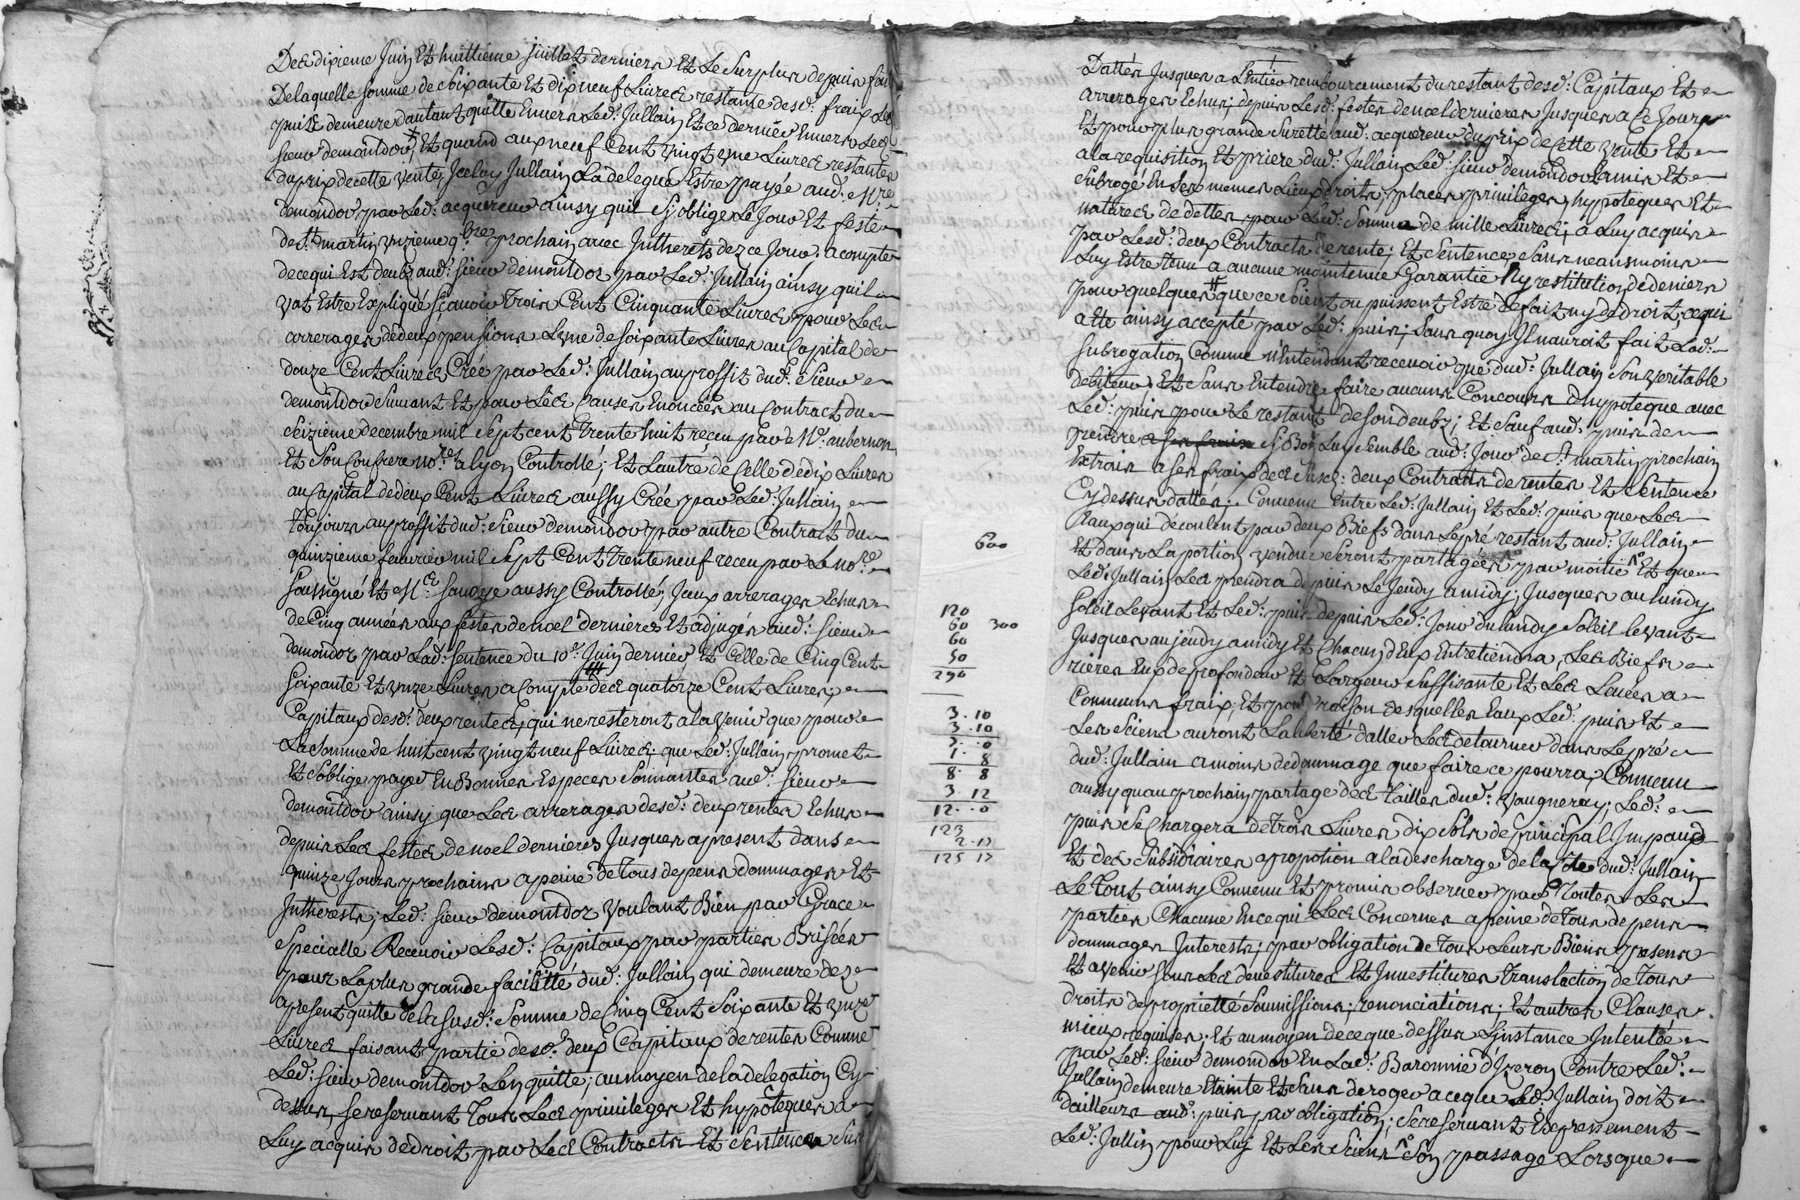 Des dixieme Juin Et huittieme Juillet derniers Et Le Surplus depuis
De laquelle somme de soixante Et dix neuf Livres restante desd: fraix Led
puis demeure d'autant quitte Envers Led: Jullain, Et ce dernier Envers Led:
sieur demontdor, Et quand aux neuf Cent vingt une Livres restantes
du prix de cette vente, Jceluy Jullain La delegue Estre payée aud: Mre
demondor par Led: acquereur ainsy quil s'y oblige Le Jour Et feste
de St martin unzieme 9bre prochain, avec Intherets dez ce Jour. a compte
de ce qui Est deub aud: sieur demontdor par Led: Jullain, ainsy quil
vat Estre Expliqué Scavoir Trois Cent Cinquante Livres pour Les
arrerages de deux pensions Lune de soixante Livres au Capital de
douze Cent Livres Créé par Led: Jullain au proffit dud: Sieur
demontdor Suivant Et pour Les Causes Enoncées au Contract du
Seizieme decembre mil Sept cent Trente huit receu par Me. aubernon
Et Son Confrere nores a Lyon Controllé; Et Lautre de Celle de dix Livres
au Capital de deux Cent Livres aussy Créé par Led: Jullain
Toujours au proffit dud: Sieur demondor par autre Contract du
quinzieme fevrier mil Sept Cent trente neuf receu par Le nore.
Soussigné Et Me. Savoye aussy Controllé; Iceux arrerages Echus
de Cinq années aux festes de noel dernieres Et adjugés aud: Sieur
demondor par Lad: Sentence du 10e. Juin dernier Et Celle de Cinq Cent
Soixante Et unze Livres a Compte des quatorze Cent Livres,
Capitaux desd: deux rentes, qui ne resteront a lavenir que pour
La Somme de huit cent vingt neuf Livres, que Led: Jullain promet
Et soblige payer En Bonnes Especes Sonnantes aud: Sieur
demontdor ainsy que Les arrerages desd: deux rentes Echus
depuis Les festes de noel dernieres Jusques a present dans
quinze Jours prochains a peine de Tous depens dommages Et
Intherests, Led: sieur demontdor voulant Bien par Grace
Specialle Recevoir Lesd: Capitaux par parties Brisées
pour La plus grande facilité dud: Jullain, qui demeure dez
a present quitte de la susd: Somme de Cinq Cent Soixante Et unze
Livres faisant partie desd: deux Capitaux de rentes Comme
Led: Sieur demontdor Len quitte; au moyen de la delegation Cy
dessus, se reservant Tous Les privileges Et hypoteques a
Luy acquis de droit par Les Contracts Et Sentence Sus
Dattés Jusques a L'entier remboursement du restant desd: Capitaux Et
arrerages Echus, depuis Lesd: festes de noel dernieres Jusques a Ce Jour
Et pour plus grande Sureté aud: acquereur du prix de Cette vente Et
a la requisition Et priere dud: Jullain Led: Sieur demondor La mis Et
Subrogé En Ses memes Lieux droits, places privileges, hypoteques Et
natures de dettes, pour Lad: Somme de mille Livres; a Luy acquis
par Lesd: deux Contracts de rente; Et Sentence Sans neansmoins
Luy Estre Tenu a aucune maintenue Garantie Ny restitution de deniers
pour quelques que ce soient, ou puissent Estre de fait ny de droit, ce qui
a Ete ainsy accepté par Led: puis; Sans quoy Il nauroit fait Lad:
Subrogation Comme n'Entendant recevoir que dud: Jullain Son veritable
debiteur, Et Sans Entendre faire aucuns Concours d'hypoteque avec
Led: puis pour Le restant de Son deub; Et Sauf aud: puis de
prendre Sy Bon Luy Semble aud: Jour de St. martin prochain
Extrais a Ses fraix des Susd: deux Contrats de rentes Et Sentence
Cy dessus dattés; Convenu Entre Led: Jullain Et Led: puis que Les
Eaux qui decoulent par deux Biefs dans Le pré restant aud: Jullain
Et dans La portion vendue Seront partagées par moitié Et que
Led: Jullain Les prendra depuis Le Jeudy a midy, Jusques au lundy
Soleil Levant Et Led: puis depuis Led: Jour du lundy Soleil levant
Jusques au jeudy a midy Et Chacun d'Eux Entretiendra Les Biefs
En profondeur Et Largeur Suffisante Et Les Levées a
Communs fraix, Et pour raison desquelles Eaux Led: puis Et
Les Siens auront La liberté daller Les detourner dans Le pré
dud: Jullain a moins de dommage que faire ce pourra, Convenu
aussy quau prochain partage des Tailles dud: Vaugneray; Led:
puis Se Chargera de Trois Livres dix sols de principal Impaud
Et des Subsidiaires a propotion a la descharge de la Cote dud: Jullain
Le Tout ainsy Convenu Et promis observer par Toutes Les
parties Chacune En ce qui Les Concernes a peine de Tous depens
dommages Interests; par obligation de Tous Leurs Biens presens
Et avenir Sous Les devestitures Et Jnvestitures Translaction de Tous
droits de proprieté Soumissions, renonciations; Et autres Clauses
mieux requises, Et au moyen de ce que dessus L'instance Intentée
par Led: Sieur demondor En Lad: Baronnie d'Yzeron Contre Led:
Jullain, demeure Eteinte Et Sans deroger a ce que Led: Jullain doit
dailleurs aud: puis par obligation; Se reservant Expressement
Led: Jullin pour Luy Et Les Siens Son passage Lorsque
600
120
60 300
60
50
290
3. 10
3. 10
1. 8
8. 8
3 12
12..0
123
2. 17
125 17